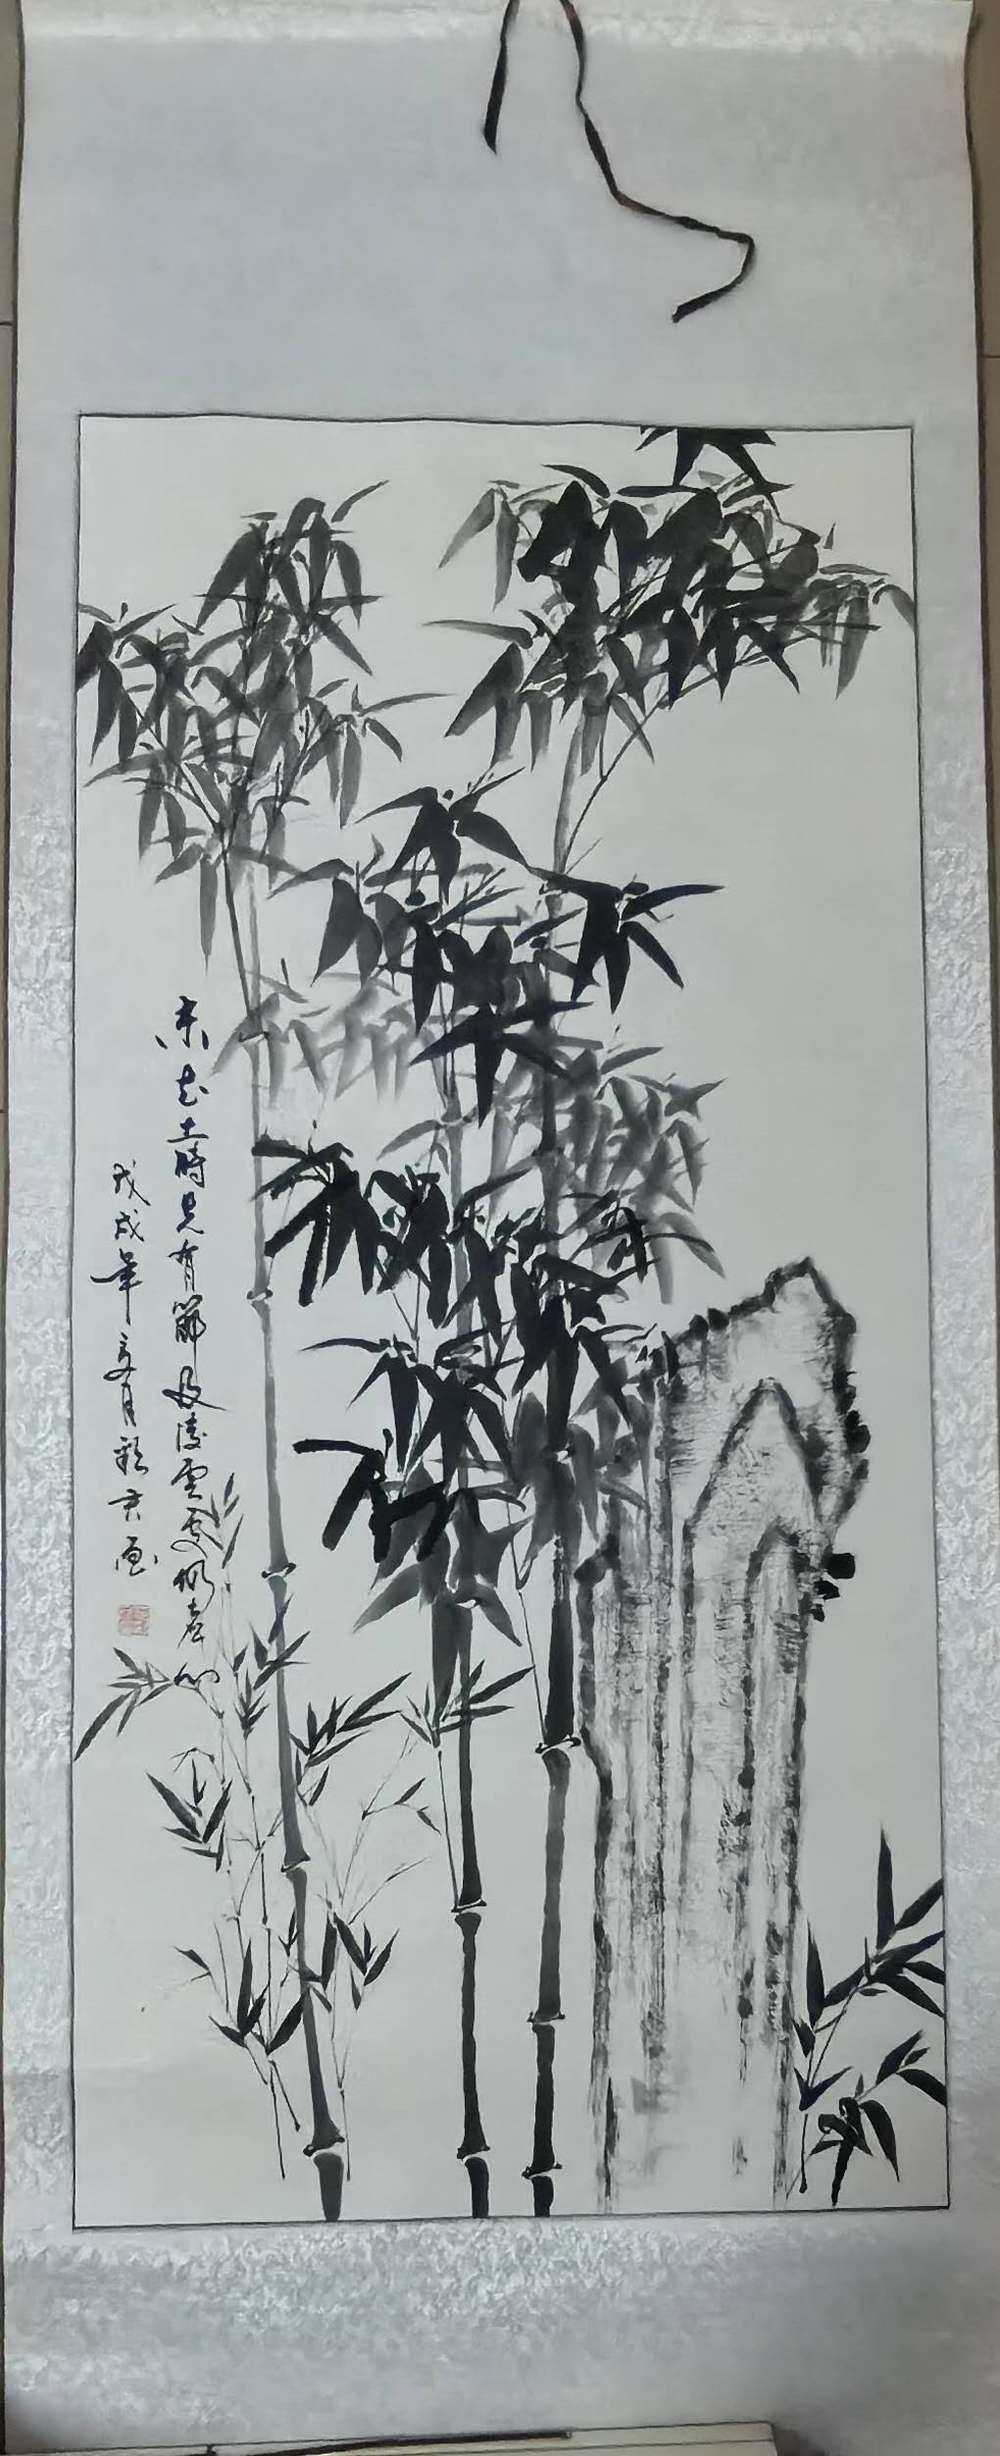 未出土時先有節及凌雲處仍虛心
戊戌年夏月 君画